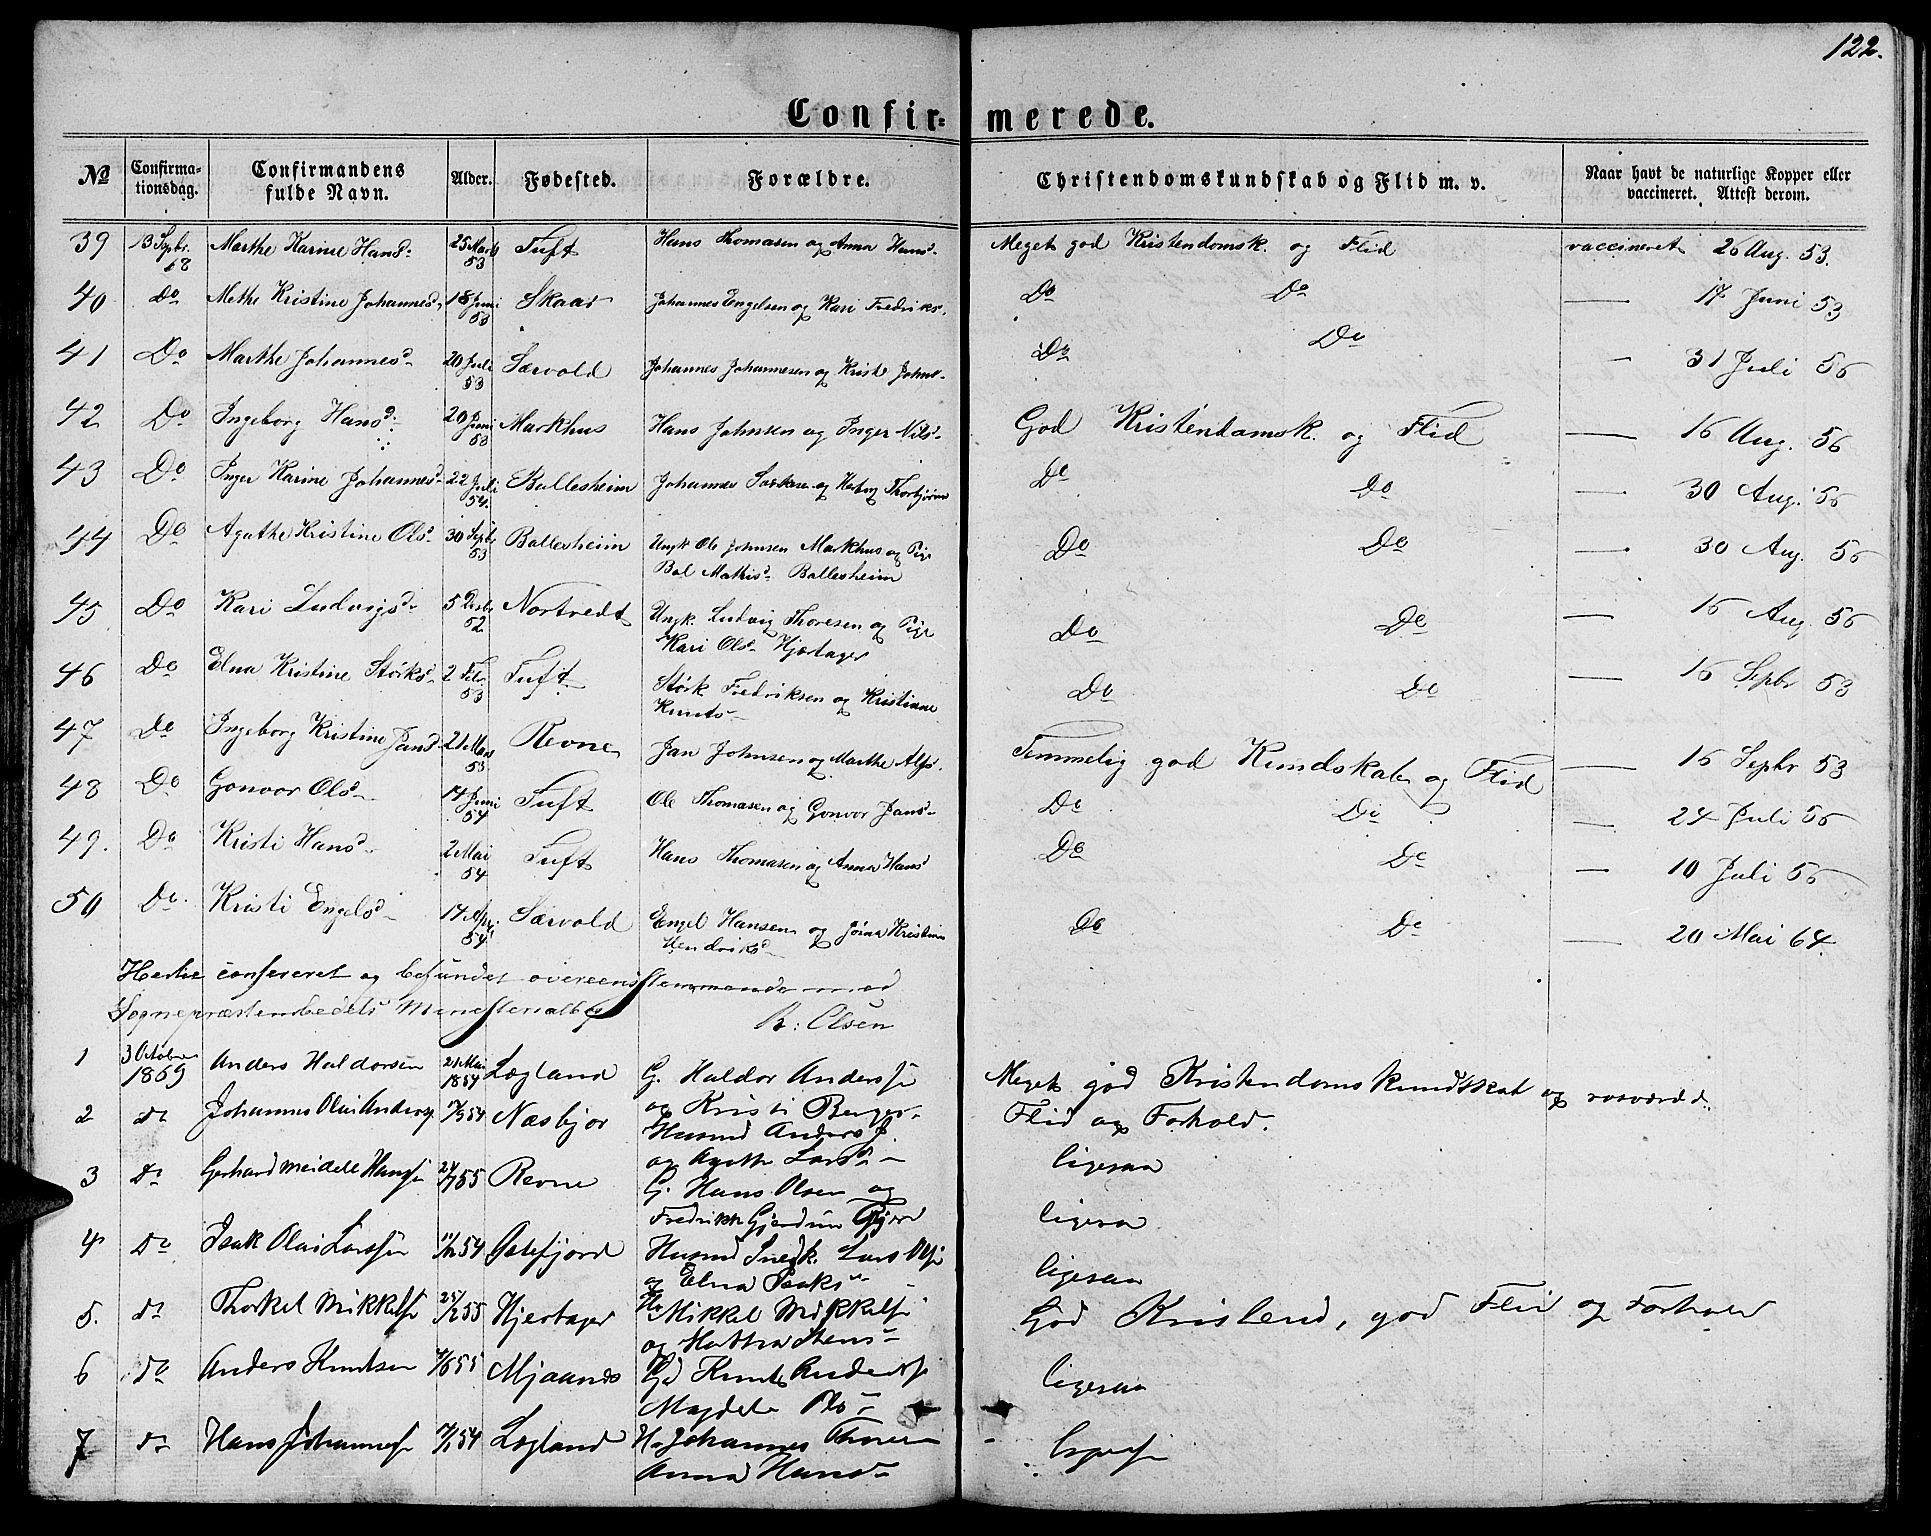 122.
Confir= merede.
No Confirma- tionsdag. Confirmandens fulde Navn. Alder. Fødested. Forældre. Christendomskundskab og Flid m. v. Naar havt de naturlige Kopper eller vaccineret. Attest derom.
39 13 Sepbr. 68 Marthe Karine Hansd. 25 Marts 53 Tuft Hans Thomasen og Anna Hansd. Meget god Kristendomsk. og Flid vaccineret 26 Aug. 53.
40 Do Methe Kristine Johannesd. 18 Juni 53 Skaar Johannes Engelsen og Kari Fredriks. Do Do — 17 Juni 53
41 Do Marthe Johannesd. 20 Juli 53 Særvold Johannes Johannesen og Kristi Do Do — 31 Juli 56
42 Do Ingeborg Hansd. 20 Juni 53 Markhus Hans Johnsen og Inger Nilsd. God Kristendomsk. og Flid — 16 Aug. 56
43 Do Inger Karine Johannesd. 22 Juli 54. Ballesheim Johannes og Do Do — 30 Aug. 56
44 Do Agathe Kristine Olsd. 30 Sepbr 53 Ballesheim Ungk. Ole Johnsen Markhus og Pige
Bol Mathisd. Ballesheim Do Do — 30 Aug. 56
45 Do Kari Ludvigsd. 5 Decbr 52 Nortvedt Ungk. Ludvig Thoresen og Pige
Kari Olsd. Hjortager Do Do — 16 Aug 56
46 Do Elna Kristine Størksd. 2 Febr. 53 Tuft Størk Fredriksen og Kristianne
Knuts Do Do — 16 Sepbr 53
47 Do Ingeborg Kristine Jansd. 21 Mars 53 Revne Jan Johnsen og Marthe Alfs. Temmelig god Kundskab og Flid — 16 Sepbr 53
48 Do Gonvor Olsd. 14 Juni 54 Tuft Ole Thomasen og Gonvor Jansd. Do Do — 24 Juli 56
49. Do Kristi Hansd. 2 Mai 54 Tuft Hans Thomasen og Anna Hansd Do Do — 10 Juli 56
50 Do. Kristi Engelsd. 17 Apr. 54 Særvold Engel Hansen og Kristine
Hendriksd. Do Do — 20 Mai 64
confereret og befundet overeensstemmende med
Sognepræstembedets Ministerialbog
Olsen
1 3 October 1869 Anders Haldorsen 21 Mai 1854 Lægland G. Haldor Anderss
og Kristi Berger Meget god Kristendomskundskab og
Flid og Forhold.
2 do Johannes Olai Anders 54 Næsbjør Husmd Anders
og Agathe Larsd. ligesaa
3 do Gerhard Meidell Hans 24/7 55 Revne G. Hans Olsen og
Fredrikke ligesaa
4 do Isak Olai Larssen 54 Østefjord Husmd Lars
og Elna Isaks ligesaa
5. do Thorkel Mikkels 25/2 55 Hjertager Mikkel Mikkels
og God Kristend, god Flid og Forhold
6 do Anders Knutsen 55 Mjaanæs Gd Knut
Magdela Ols ligesaa
7 do Hans Johannes 54 Lægland H. Johannes
Anna Hansd.